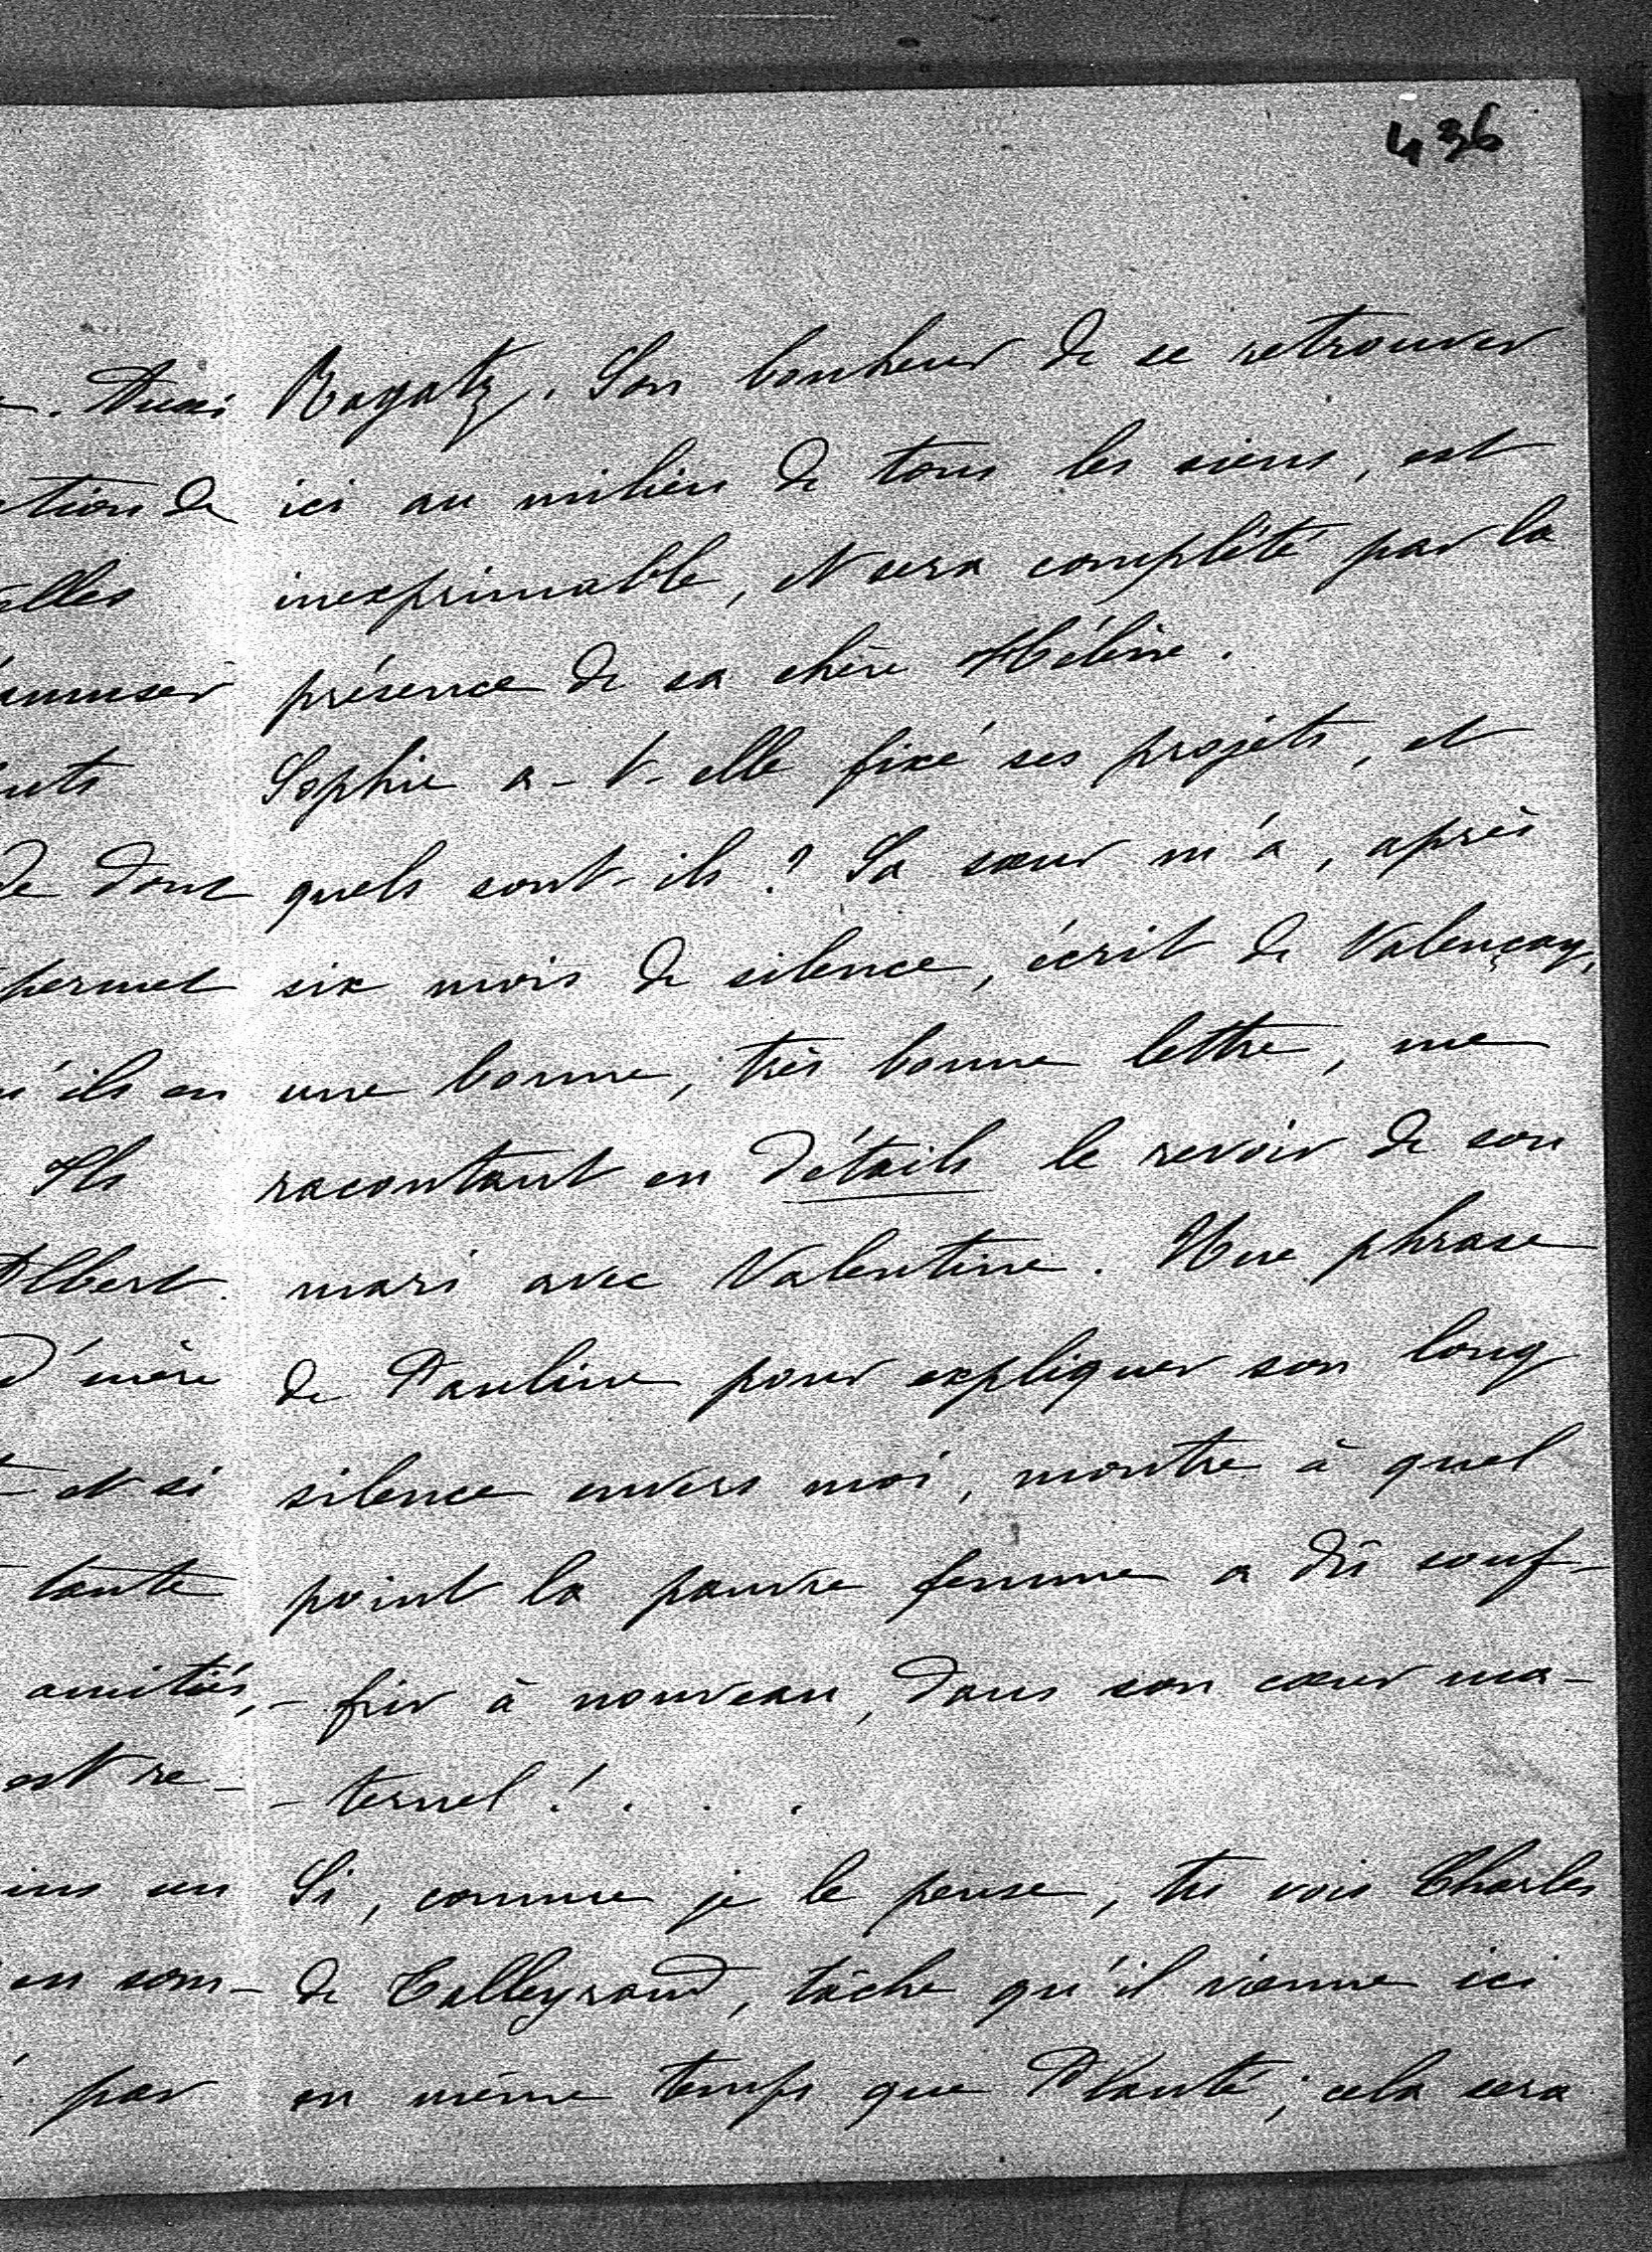 436
Ragatz. Son bonheur de se retrouver
ici au milieu de tous les siens, est
inexprimable, et sera complété par la
présence de sa chère Hélène.
Sophie a-t-elle fixé ses projets, et
quels sont-ils ? Sa sœur m'a, après
six mois de silence, écrit de Valençay,
une bonne, très bonne lettre, me
racontant en détails le revoir de son
mari avec Valentine. Une phrase
de Pauline pour expliquer son long
silence envers moi, montre à quel
point la pauvre femme a dû souf-
-frir à nouveau, dans son cœur ma-
-ternel ! . . .
Si, comme je le pense, tu vois Charles
de Talleyrand, tâche qu'il vienne ici
en même temps que Planté ; cela sera
tion de
elles
amuser
donc
permet
'ils en
Ils
Albert.
et si
tante
amitiés,
est re-
un
en som-
par